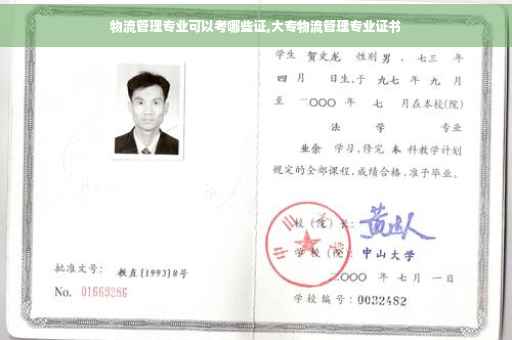 物流管理专业可以考哪些证,大专物流管理专业证书
学生 贺文龙 性别 男 、七三 年
四 月 日生,于 九七 年 九 月
至 二〇〇〇 年 七 月在本校(院)
法 学 专业
业余 学习,修完 本 科教学计划
规定的全部课程,成绩合格,准予毕业。
校(院)长:
学校(院):中山大学
批准文号: 教直[1993]8号
二〇〇〇 年 七 月 一日
No. 01669286
学校编号:0032482